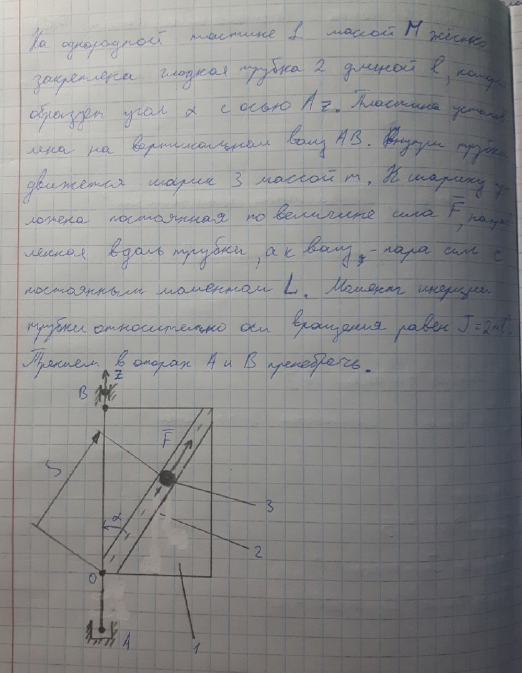 На однородной пластине 1 массой М жёстко
закреплена гладкая трубка 2 длиной l,
образует угол α с осью Az. Пластина
лена на вертикальном валу AB. Внутри
движется шарик 3 массой m. К шарику
ложена постоянная по величине сила F̅,
ленная вдоль трубки, а к валу - пара сил с
постоянным моментом L. Момент инерции
трубки относительно оси вращения равен
Трением в опорах А и В пренебречь.
z
B
F̅
S
α
3
2
O
1
A